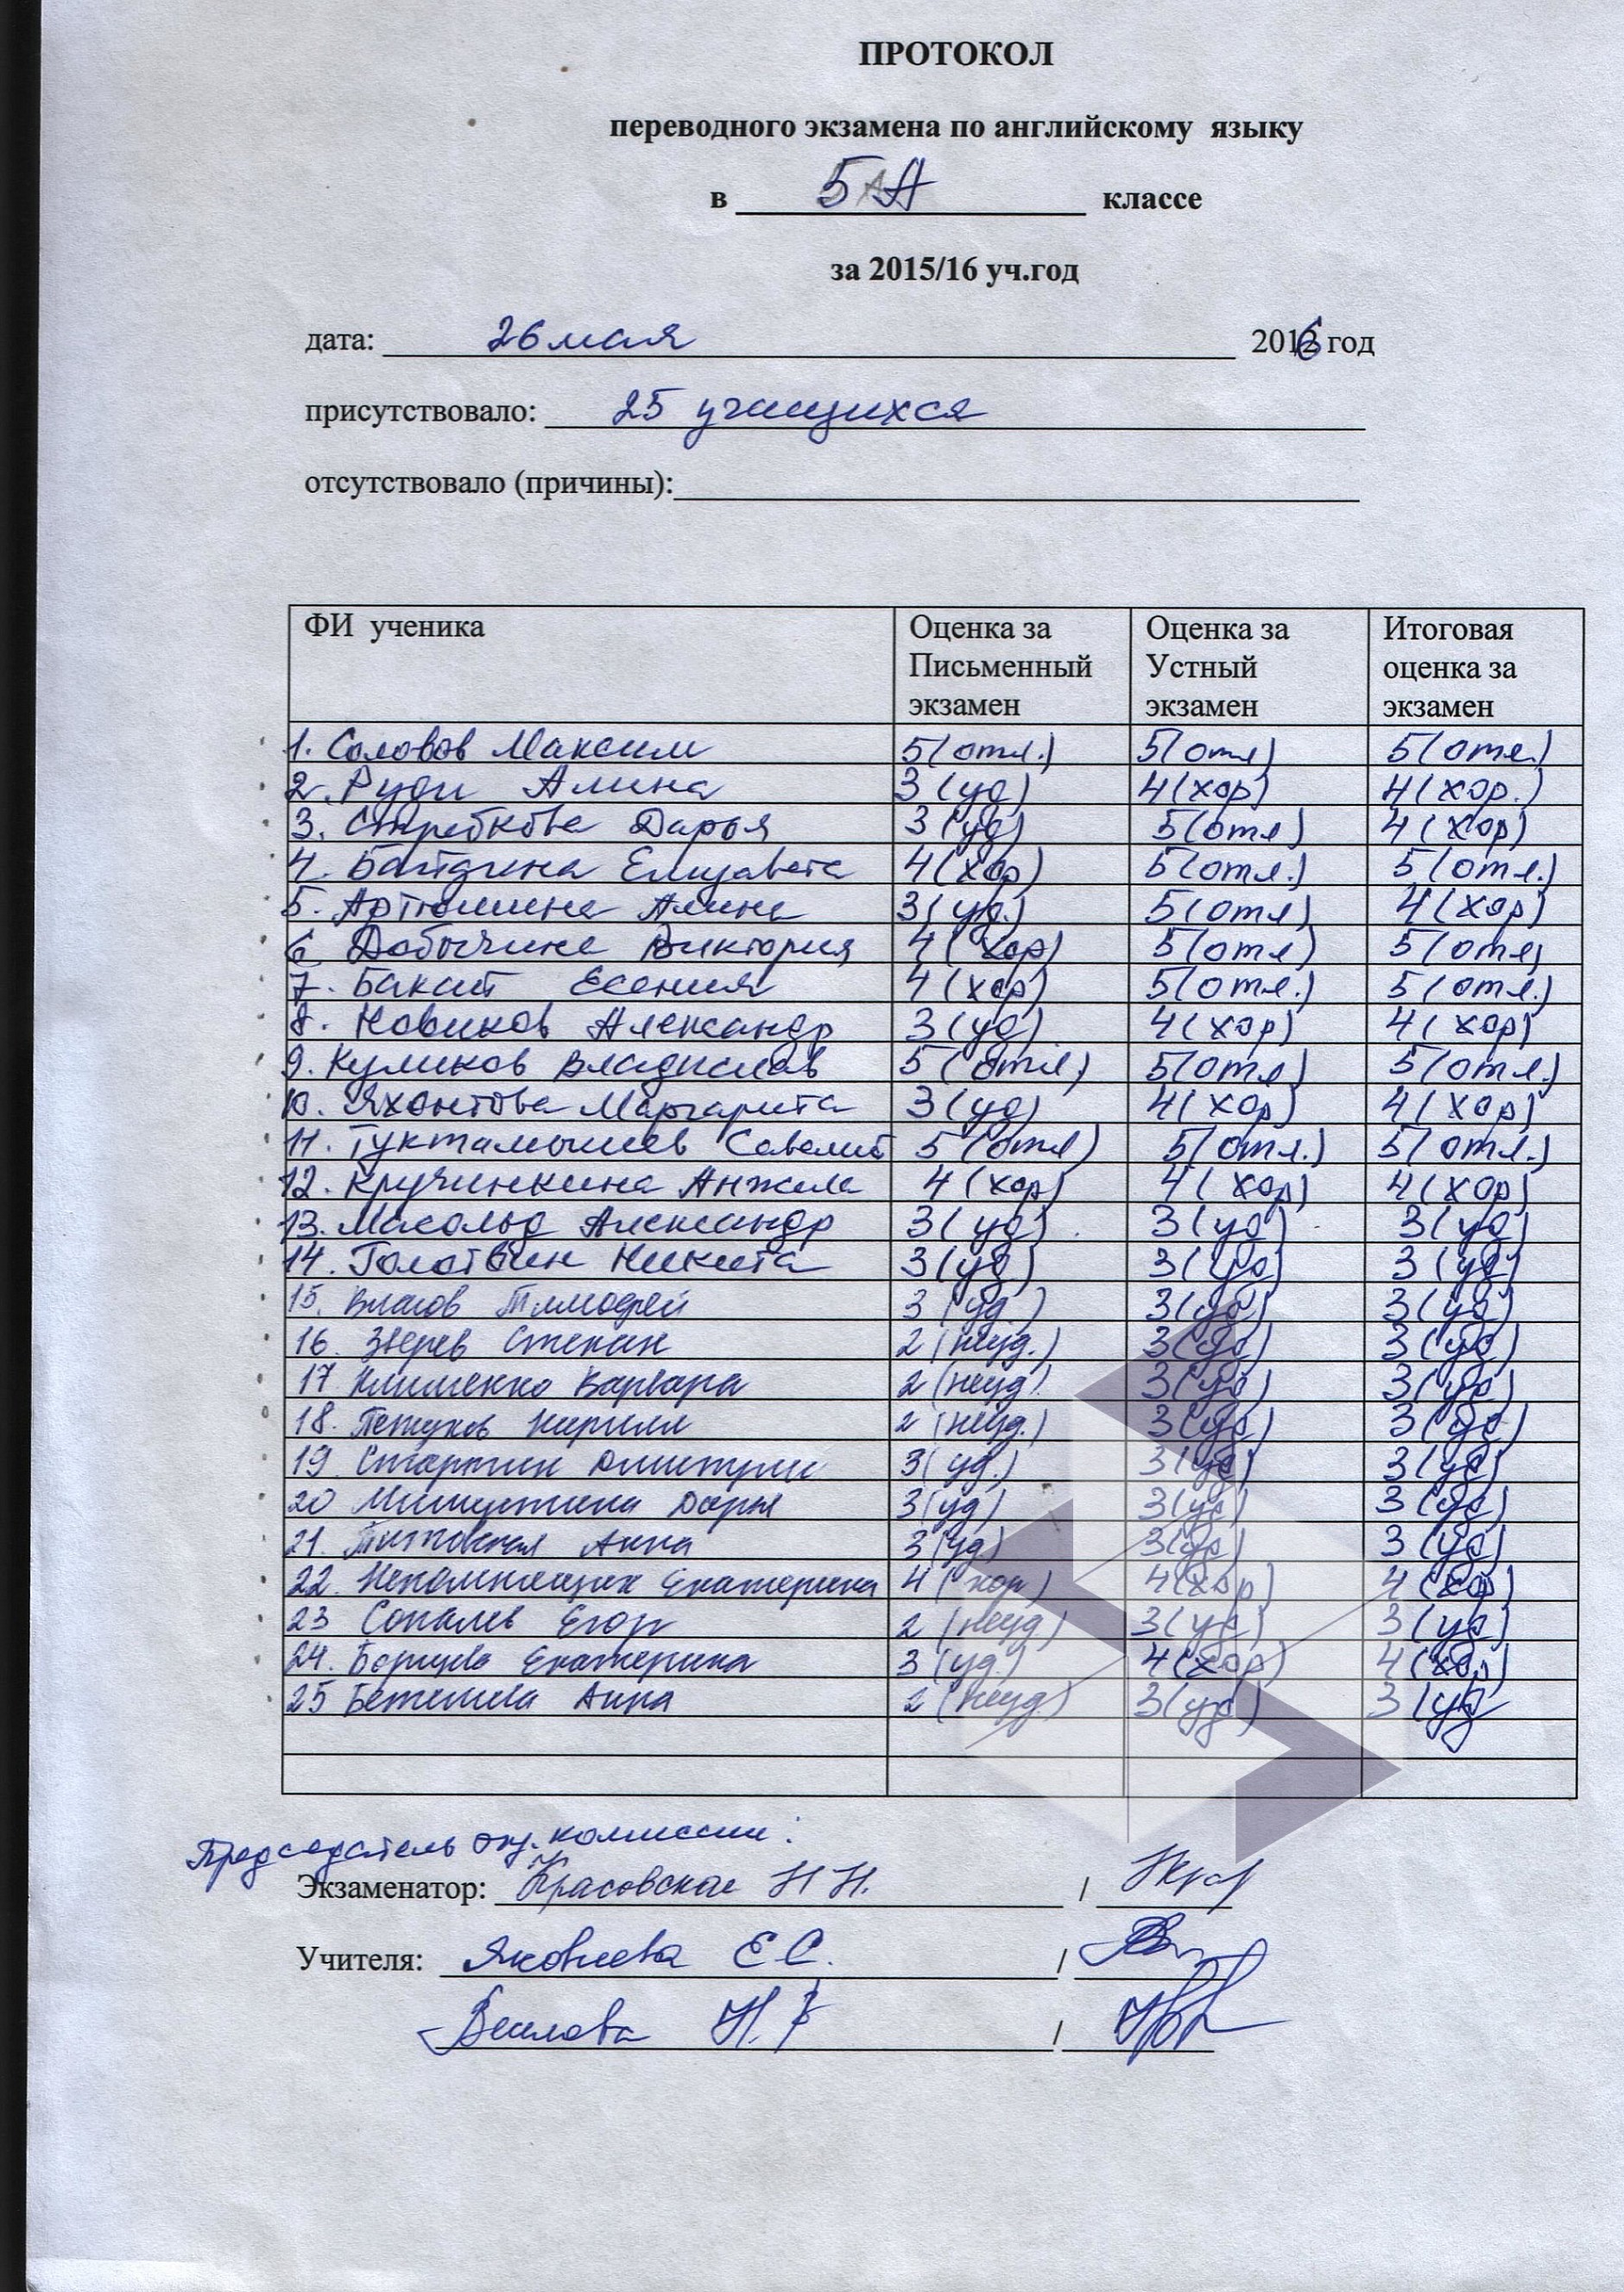 ПРОТОКОЛ
переводного экзамена по английскому языку
в 5 А классе
за 2015/16 уч.год
дата: 26 мая 2016 год
присутствовало: 25 учащихся
отсутствовало (причины):
ФИ ученика Оценка за Письменный экзамен Оценка за Устный экзамен Итоговая оценка за экзамен
1. Соловов Максим 5(отл.) 5(отл) 5(отл.)
2. Руди Алина 3(уд) 4(хор) 4(хор.)
3. Стребкова Дарья 3(уд) 5(отл) 4(хор)
4. Байдина Елизавета 4(хор) 5(отл.) 5(отл.)
5. Артюшина Алина 3(уд.) 5(отл) 4(хор)
6. Добычина Виктория 4(хор) 5(отл) 5(отл)
7. Бакит Есения 4(хор) 5(отл.) 5(отл.)
8. Новиков Александр 3(уд) 4(хор) 4(хор)
9. Куликов Владислав 5(отл) 5(отл) 5(отл.)
10. Яхонтова Маргарита 3(уд) 4(хор) 4(хор)
11. Туктамышев Савелий 5(отл) 5(отл.) 5(отл.)
12. Кручинкина Анжела 4(хор) 4(хор) 4(хор)
13. Александр 3(уд) 3(уд) 3(уд)
14. Голотвин Никита 3(уд) 3(уд) 3(уд)
15. Власов Тимофей 3(уд.) 3(уд) 3(уд)
16. Зверев Степан 2(неуд.) 3(уд) 3(уд)
17 Клименко Варвара 2(неуд) 3(уд) 3(уд)
18. Петухов Кирилл 2(неуд.) 3(уд) 3(уд)
19. Дмитрий 3(уд.) 3(уд) 3(уд)
20 Мишустина Дарья 3(уд) 3(уд) 3(уд)
21. Анна 3(уд) 3(уд) 3(уд)
22. Непомнящих Екатерина 4(хор) 4(хор) 4(хор)
23 Егор 2(неуд) 3(уд) 3(уд)
24. Екатерина 3(уд.) 4(хор) 4(хор)
25 Анна 2(неуд.) 3(уд) 3(уд)
Председатель экз. комиссии:
Экзаменатор: Красовская Н Н. /
Учителя: Яковлева Е С. /
Н. /